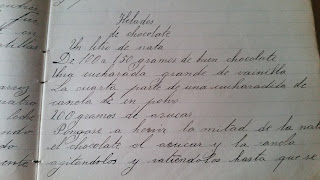 Helados
de chocolate
Un litro de nata
De 100 a 150 gramos de buen chocolate
Una cucharada grande de vainilla
La cuarta parte de una cucharadita de
canela de en polvo
200 gramos de azucar
Póngase a hervir la mitad de la nata
el chocolate el azucar y la canela
agitandolos y batiendolos hasta que se